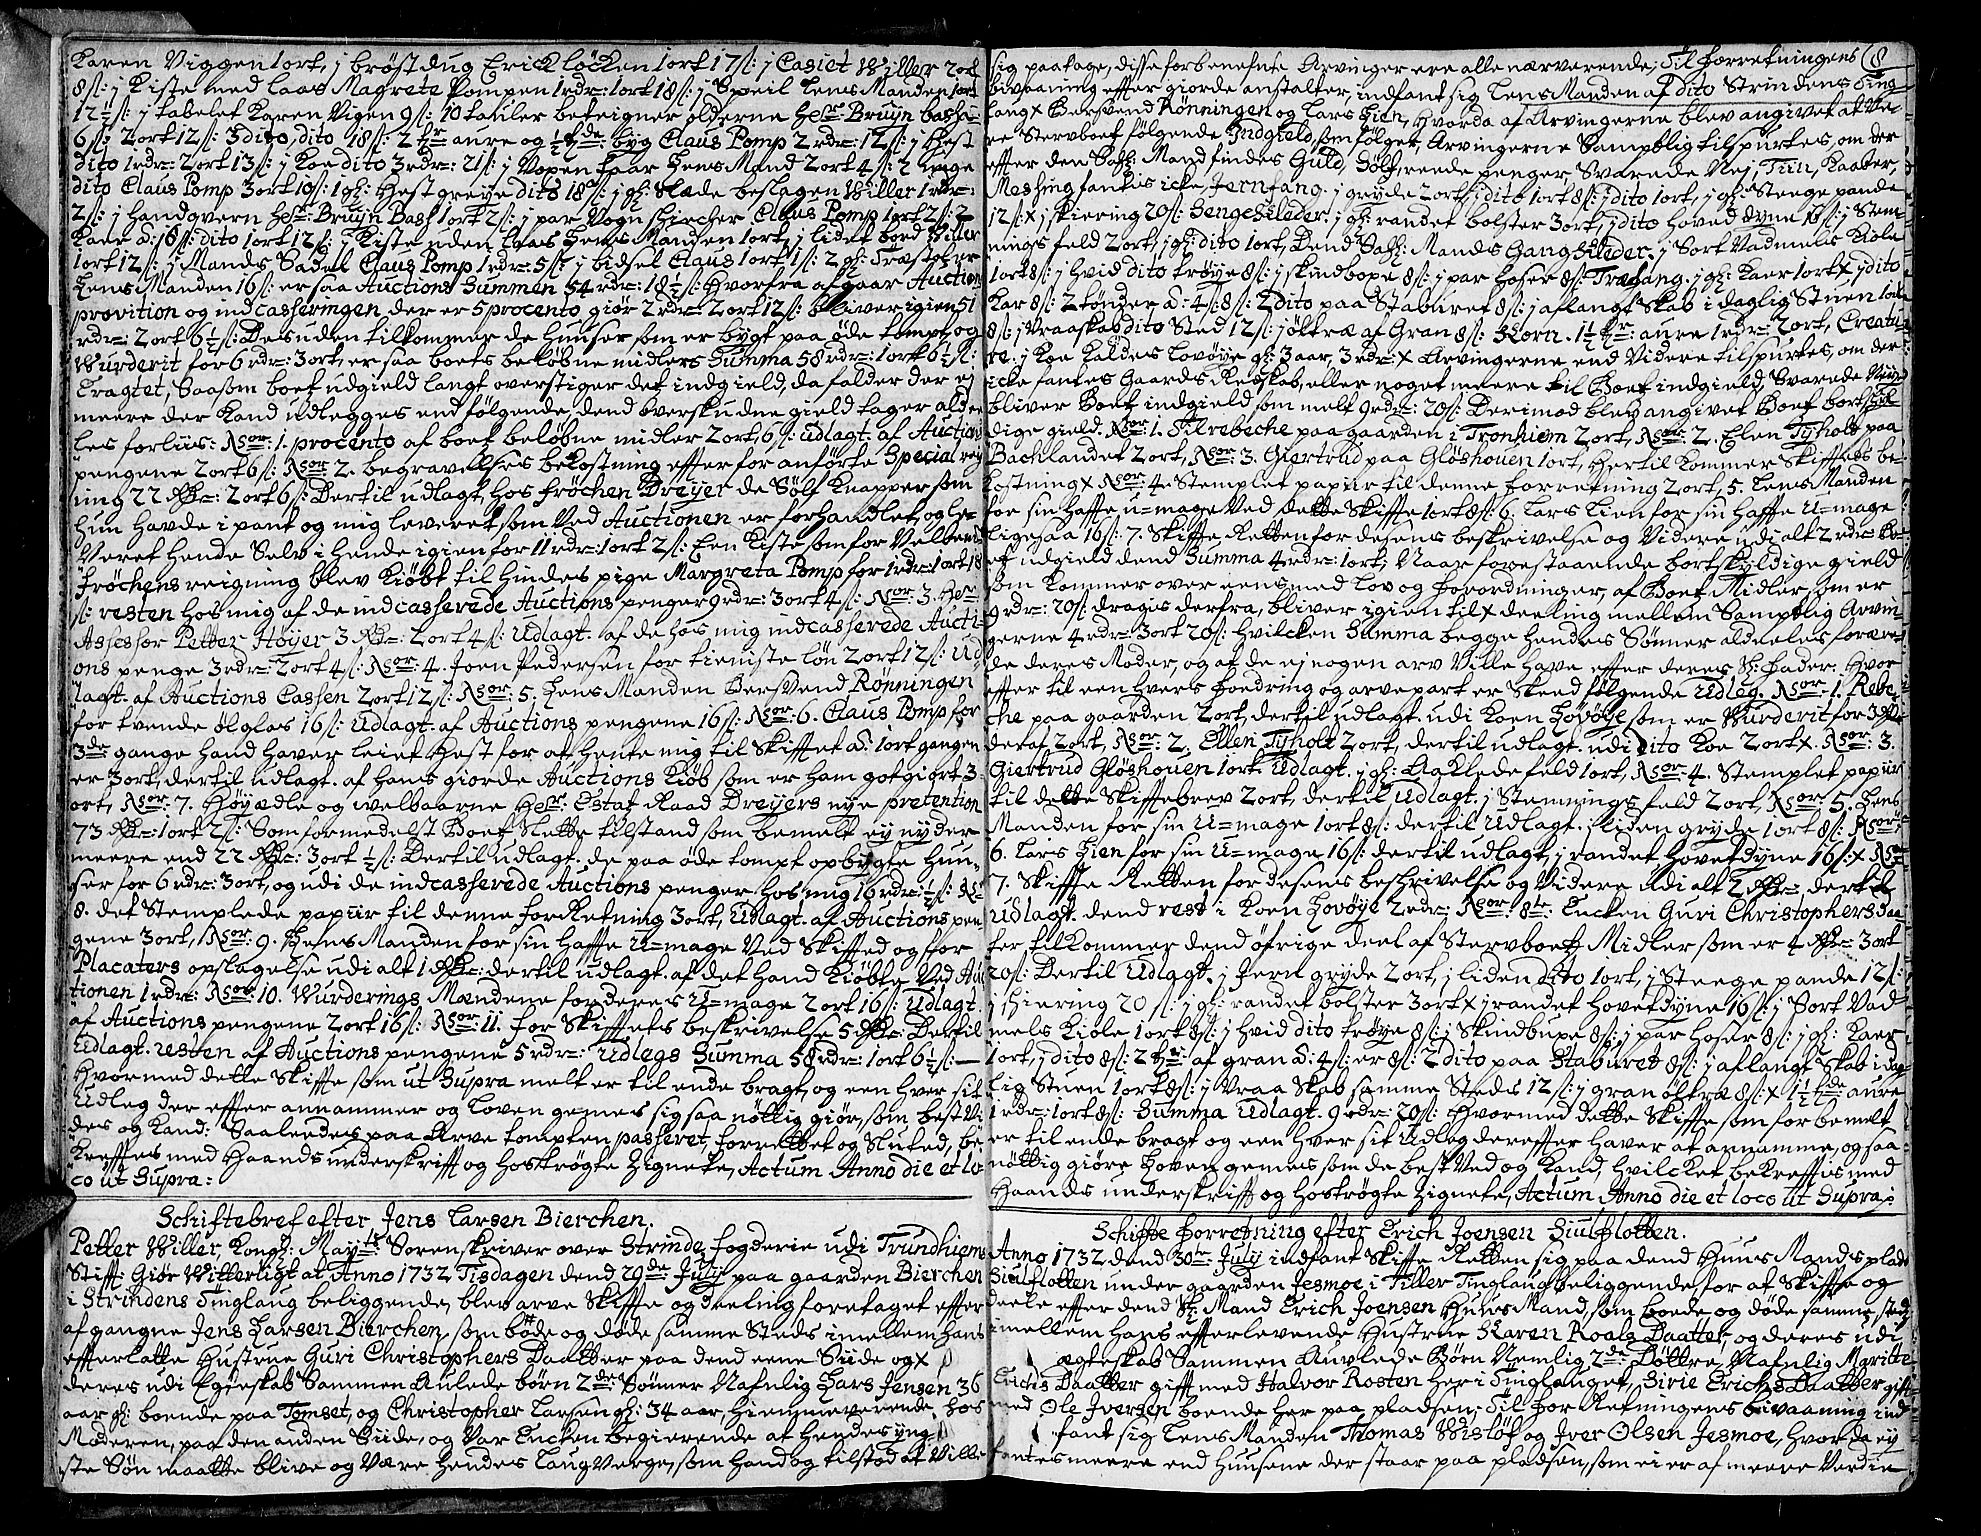 Karen Viggen 1 ort, j brøstdug Erich löcken 1 ort 17 s: j Casiet Willer 2 ort
8 s: j Kiste med laas Magrete Pompen 1 rdr: 1 ort 18 s: j Speil LensManden 1 ort
12½ s: j tabelet Karen Vigen 9 s: 10 tauler beteigner alderne Hr: Bruijn bass
6 s: 2 ort 12 s: 3 dito, dito 18 s: 2 tr aure og ½ tde: byg Claus Pomp 2 rdr: 12 s: j Hest
dito 1 rdr: 2 ort 13 s: j Koe dito 3 rdr: 21 s: j Vopen Spar LensMand 2 ort 4 s: 2 unge
dito Claus Pomp 3 ort 10 s: 1 gl: Hest greye dito 18 s: j gl: Slæde beslagen Willer 1 rdr:
2 s: j Handqvern Hr: Bruijn Bass 1 ort 2 s: j par Vogn Claus Pomp 1 ort 2 s: 2
Kaer a: 16 s: dito 1 ort 12 s: j Kiste uden Laas LensManden 1 ort, j lidet bord Willer
1 ort 12 s: j Mands Sadel Claus Pomp 1 rdr: 5 s: j bidsel Claus 1 ort 1 s: 2 gl:
LensManden 16 s: er saa Auctions Summen 54 rdr: 18½ s: Hvorfra afgaar Auction
provition og indcasseringen der er 5 procento giør 2 rdr: 2 ort 12 s: bliver igien 51
rdr: 2 ort 6½ s: Desuden tilkommer de Huuser som er bygt paa øde tompt, og
Wurderit for 6 rdr: 3 ort, er saa boets beløbne midlers Summa 58 rdr: 1 ort 6½ s:
Tragtet, Saasom boet udgield langt overstiger det indgield, da falder der ej
meere der Kand udlegges end følgende, dend overskudne gield tager alde
les forliis: No: 1. procento af boet beløbne midler 2 ort, 6 s: udlagt. af Auction
pengene 2 ort 6 s: No: 2. begravelses bekostning effter for anførte Special reig
ning 22 Rdr: 2 ort 6 s: Dertil udlagt, hos frøchen Dreyer de Sølf Knapper som
hun havde i pant og mig leveret som Ved Auctionen er forhandlet, og le
Veret Hende Selv i hende igien for 11 rdr: 1 ort 2 s: Een Kiste som for Velbem:
frøchens reigning blev Kiøbt til hindes pige Margreta Pomp for 1 rdr: 1 ort 18
s: resten hos mig af de indcasserede Auctions penger 9 rdr: 3 ort 4 s: No: 3. Hr:
Assessor Petter Høyer 3 Rdr: 2 ort 4 s: Udlagt. af de hos mig indcasserede Aucti-
ons penge 3 rdr: 2 ort 4 s: No: 4. Joen Pedersen for tieniste løn 2 ort 12 s: Ud
lagt. af Auctions Cassen 2 ort 12 s: No: 5. LensManden BersVend Rønningen
for tvende ølglas 16 s: Udlagt. af Auctions pengene 16 s: No: 6. Claus Pomp for
3de gange hand haver leiet Hest for at hente mig til Skifftet a: 1 ort gangen
er 3 ort, dertil udlagt. af hans giorde Auctions Kiøb som er ham gotgiort 3
ort, No: 7. Høyædle og welbaarne Hr: Estatz Raad Dreyers nye pretention
73 Rdr: 1 ort 2 s: Som formedelst Boets Slette tilstand som bemelt ey nyder
meere end 22 Rdr: 3 ort ½ s: Dertil udlagt. de paa øde tompt opbygte Huu-
ser for 6 rdr: 3 ort, og udi de indcasserede Auctions penger hos mig 16 rdr: ½ s: No:
8. det Stemplede papiir til denne forRetning 3 ort, Udlagt. af Auctions pen
gene 3 ort, No: 9. LensManden for sin haffte U=mage Ved Skiffted og for
Placaters opslagelse udi alt 1 Rdr: dertil udlagt. af det hand Kiøbte Ved Auc
tionen 1 rdr: No: 10. Wurderings Mændene for deres U=mage 2 ort 16 s: Udlagt.
af Auctions pengene 2 ort 16 s: No: 11. for Skifftets beskrivelse 5 Rdr: Dertil
Udlagt. resten af Auctions pengene 5 rdr: Udlegs Summa 58 rdr: 1 ort 6½ s:
Hvormed dette Skiffte som ut Supra melt er til ende bragt, og een hver sit
Udleg der effter annammer og Loven gemes sig saa nöttig giør, som best Vi
des og Kand: Saaleedes paa Arve tompten passeret, forrettet og Sluted, be
Kreffтes med Haands underskrifft og hoströgte Zignete, Actum Anno die et lo
co ut Supra:
Schiftebref efter Jens Larsen Bierchen.
Petter Willer, Kongl: Mayts Sorenskriver over Strinde fogderie udi Trundhiems
Stift: Giør Witterligt at Anno 1732 Tisdagen dend 29de July paa gaarden Bierchen
i Strindens Tinglaug beliggende, blev arve Skiffte og deeling foretaget effter
afgangne Jens Larsen Bierchen, som bøde og døde samme Steds imellem hans
effterlatte Hustrue Guri Christophers Daatter paa dend eene Siide og x
deres udi Egteskab Sammen Aulede børn 2de Sønner Nafnlig Lars Jensen 36
aar gl: boende paa Tomset, og Christopher Larsen gl: 34 aar, hiemmeverende hos
Moderen, paa den anden Siide, og Var Encken begierende at hendes yng
ste Søn maatte blive og Være hendes LaugVerge, som hand og tilstod at Ville
sig paatage, disse forbenefnte Arvinger ere alle nærverende; Til forretningens 8
bivaaning effter giorde anstalter, indfant sig LensManden af dito Strindens Ting
laug x BersVend Rønningen og Lars Lien, hvorda af Arvingerne blev angivet at Ve-
re Stervboet følgende Indgield som følger, Arvingerne Samptlig tilspurtes, om der
effter den Sahl: Mand findes Guld, Sølf, rede penger, Svarede Nej, Tiin, Kaaber,
Messing fantes icke, Jernfang. j gryde 2 ort, j dito 1 ort 8 s: j dito 1 ort, j gl: Steege pande
12 s: x j skiering 20 s: Sengeklæder. j gl: randet bolster 3 ort, j dito hoved dyne 16 s: j Stem
nings feld 2 ort, j gl: dito 1 ort, Dend Sahl: Mands Gangklæder. j Sort Vadmels Kiole
1 ort 8 s: j hvid dito trøye 8 s: j skindboxe 8 s: j par hoser 8 s: Træfang. j gl: Kaer 1 ort x j dito
Kar 8 s: 2 tønder a: 4 s: 8 s: 2 dito paa Staburet 8 s: j aflangt Skab i daglig Stuen 1 ort
8 s: j Vraaskab dito Sted 12 s: j øltræ af Gran 8 s: Korn. 1½ tr: aure 1 rdr: 2 ort, Creatu
re. j Koe Kaldes Lovøye gl: 3 aar, 3 rdr: x Arvingerne end Videre tilspurtes, om der
icke fantes Gaards Redskab, eller noget meere til Boets indgield, Svarede Nej,
bliver Boets indgield som melt 9 rdr: 20 s: Derimod blev angivet Boets bortskyl
dige gield. No: 1. Til rebeche paa gaarden i Tronhiem 2 ort, No: 2. Elen Tyholt paa
Bachlandet 2 ort, No: 3. Giertrud paa Gløshouen 1 ort, Hertil Kommer Skifftets be-
kostning x No: 4. Stemplet papiir til denne forretning 2 ort, 5. LensManden
for sin haffte U=mage Ved dette Skiffte 1 ort 8 s: 6. Lars Lien for sin haffte U=mage
ligesaa 16 s: 7. Skiffte Retten for desens beskrivelse og Videre udi alt 2 rdr: Bo-
et udgield dend Summa 4 rdr: 1 ort, Naar forestaaende bortskyldige gield
som Kommer over eens med Lov og forordninger, af Boets Midler som er
9 rdr: 20 s: dragis derfra, bliver igien til x deeling mellem Samptlig Arvin
gerne 4 rdr: 3 ort 20 s: hvilcken Summa begge hendes Sønner aldeeles foræ-
de deres Moder, og af de ej nogen arv Ville have effter deres Sl: fader. Hvor
effter til een hvers fordring og arvepart er Skeed følgende Udleg. No: 1. Rebe
che paa gaarden 2 ort, dertil udlagt. udi Koen Lovøye som er Wurderit for 3 Rdr:
deraf 2 ort, No: 2. Ellen Tyholt 2 ort, dertil udlagt. udi dito Koe 2 ort x. No: 3.
Giertrud Gløshouen 1 ort Udlagt. j gl: Aaklede feld 1 ort, No: 4. Stemplet papiir
til dette Skifftebrev 2 ort, dertil Udlagt. j Stemnings feld 2 ort, No: 5. Lens
Manden for sin U=mage 1 ort 8 s: dertil Udlagt. j liden gryde 1 ort 8 s: No:
6. Lars Lien for sin U=mage 16 s: dertil udlagt, j randet hovetdyne 16 s: x No:
7. Skiffte Retten for desens beschrivelse og Videre udi alt 2 Rdr: dertil
Udlagt. dend rest i Koen Lovøye 2 rdr: No: 8te: Encken Guri Christophers daa-
ter tilkommer dend öfrige deel af Stervboets Midler som er 4 Rdr: 3 ort
20 s: Dertil Udlagt. j Jern gryde 2 ort, j liden dito 1 ort, j Steege pande 12 s:
j skiering 20 s: j gl: randet bolster 3 ort x j randet hovetdyne 16 s: j Sort Vad
mels Kiole 1 ort 8 s: j hvid dito trøye 8 s: j Skindbuxe 8 s: j par hoser 8 s: j gl: Kaer
1 ort, j dito 8 s: 2 tr: af gran a: 4 s: er 8 s: 2 dito paa Staburet 8 s: j aflangt Skab i dag-
lig Stuen 1 ort 8 s: j Vraa Skab samme Steds 12 s: j gran øltræ 8 s: x 1½ tde aure
1 rdr: 1 ort 8 s: Summa Udlagt. 9 rdr: 20 s: Hvormed dette Skiffte som forbemelt
er til ende bragt og een hver sit Udleg dereffter haver at annamme, og saa
nöttig giøre Loven gemes som de best Ved og Kand, hvilcket bekrefftes med
Haands underskrifft og hoströgte Zignete, Actum Anno die et loco ut Supra:
Schifte forretning efter Erich Joensen Ziulflotten.
Anno 1732 dend 30te July indfant Skiffte Retten sig paa dend Huus Mands plads
Ziulflotten under gaarden Jesmoe i Tiller Tinglaug beliggende for at Skiffte og
deele effter dend Sl: Mand Erich Joensen HuusMand, som boede og døde samme sted
imellem hans effterlevende Hustrue Karen Roals Daatter, og deres udi
ægteskab Sammen Auvlede Børn Nemlig 2de Døttre, Nafnlig Maritte
Erichs Daatter gifft med Halvor Rosten her i Tinglauget, Sirie Erichs Daatter gifft
med Ole Iversen boende her paa pladsen; Til forRetningens bivaaning ind
fant sig LensManden Thomas Wisløf og Iver Olsen Jesmoe, hvorda ey
fantes meere end huusene der staar paa pladsen, som ei er af meere Verdie